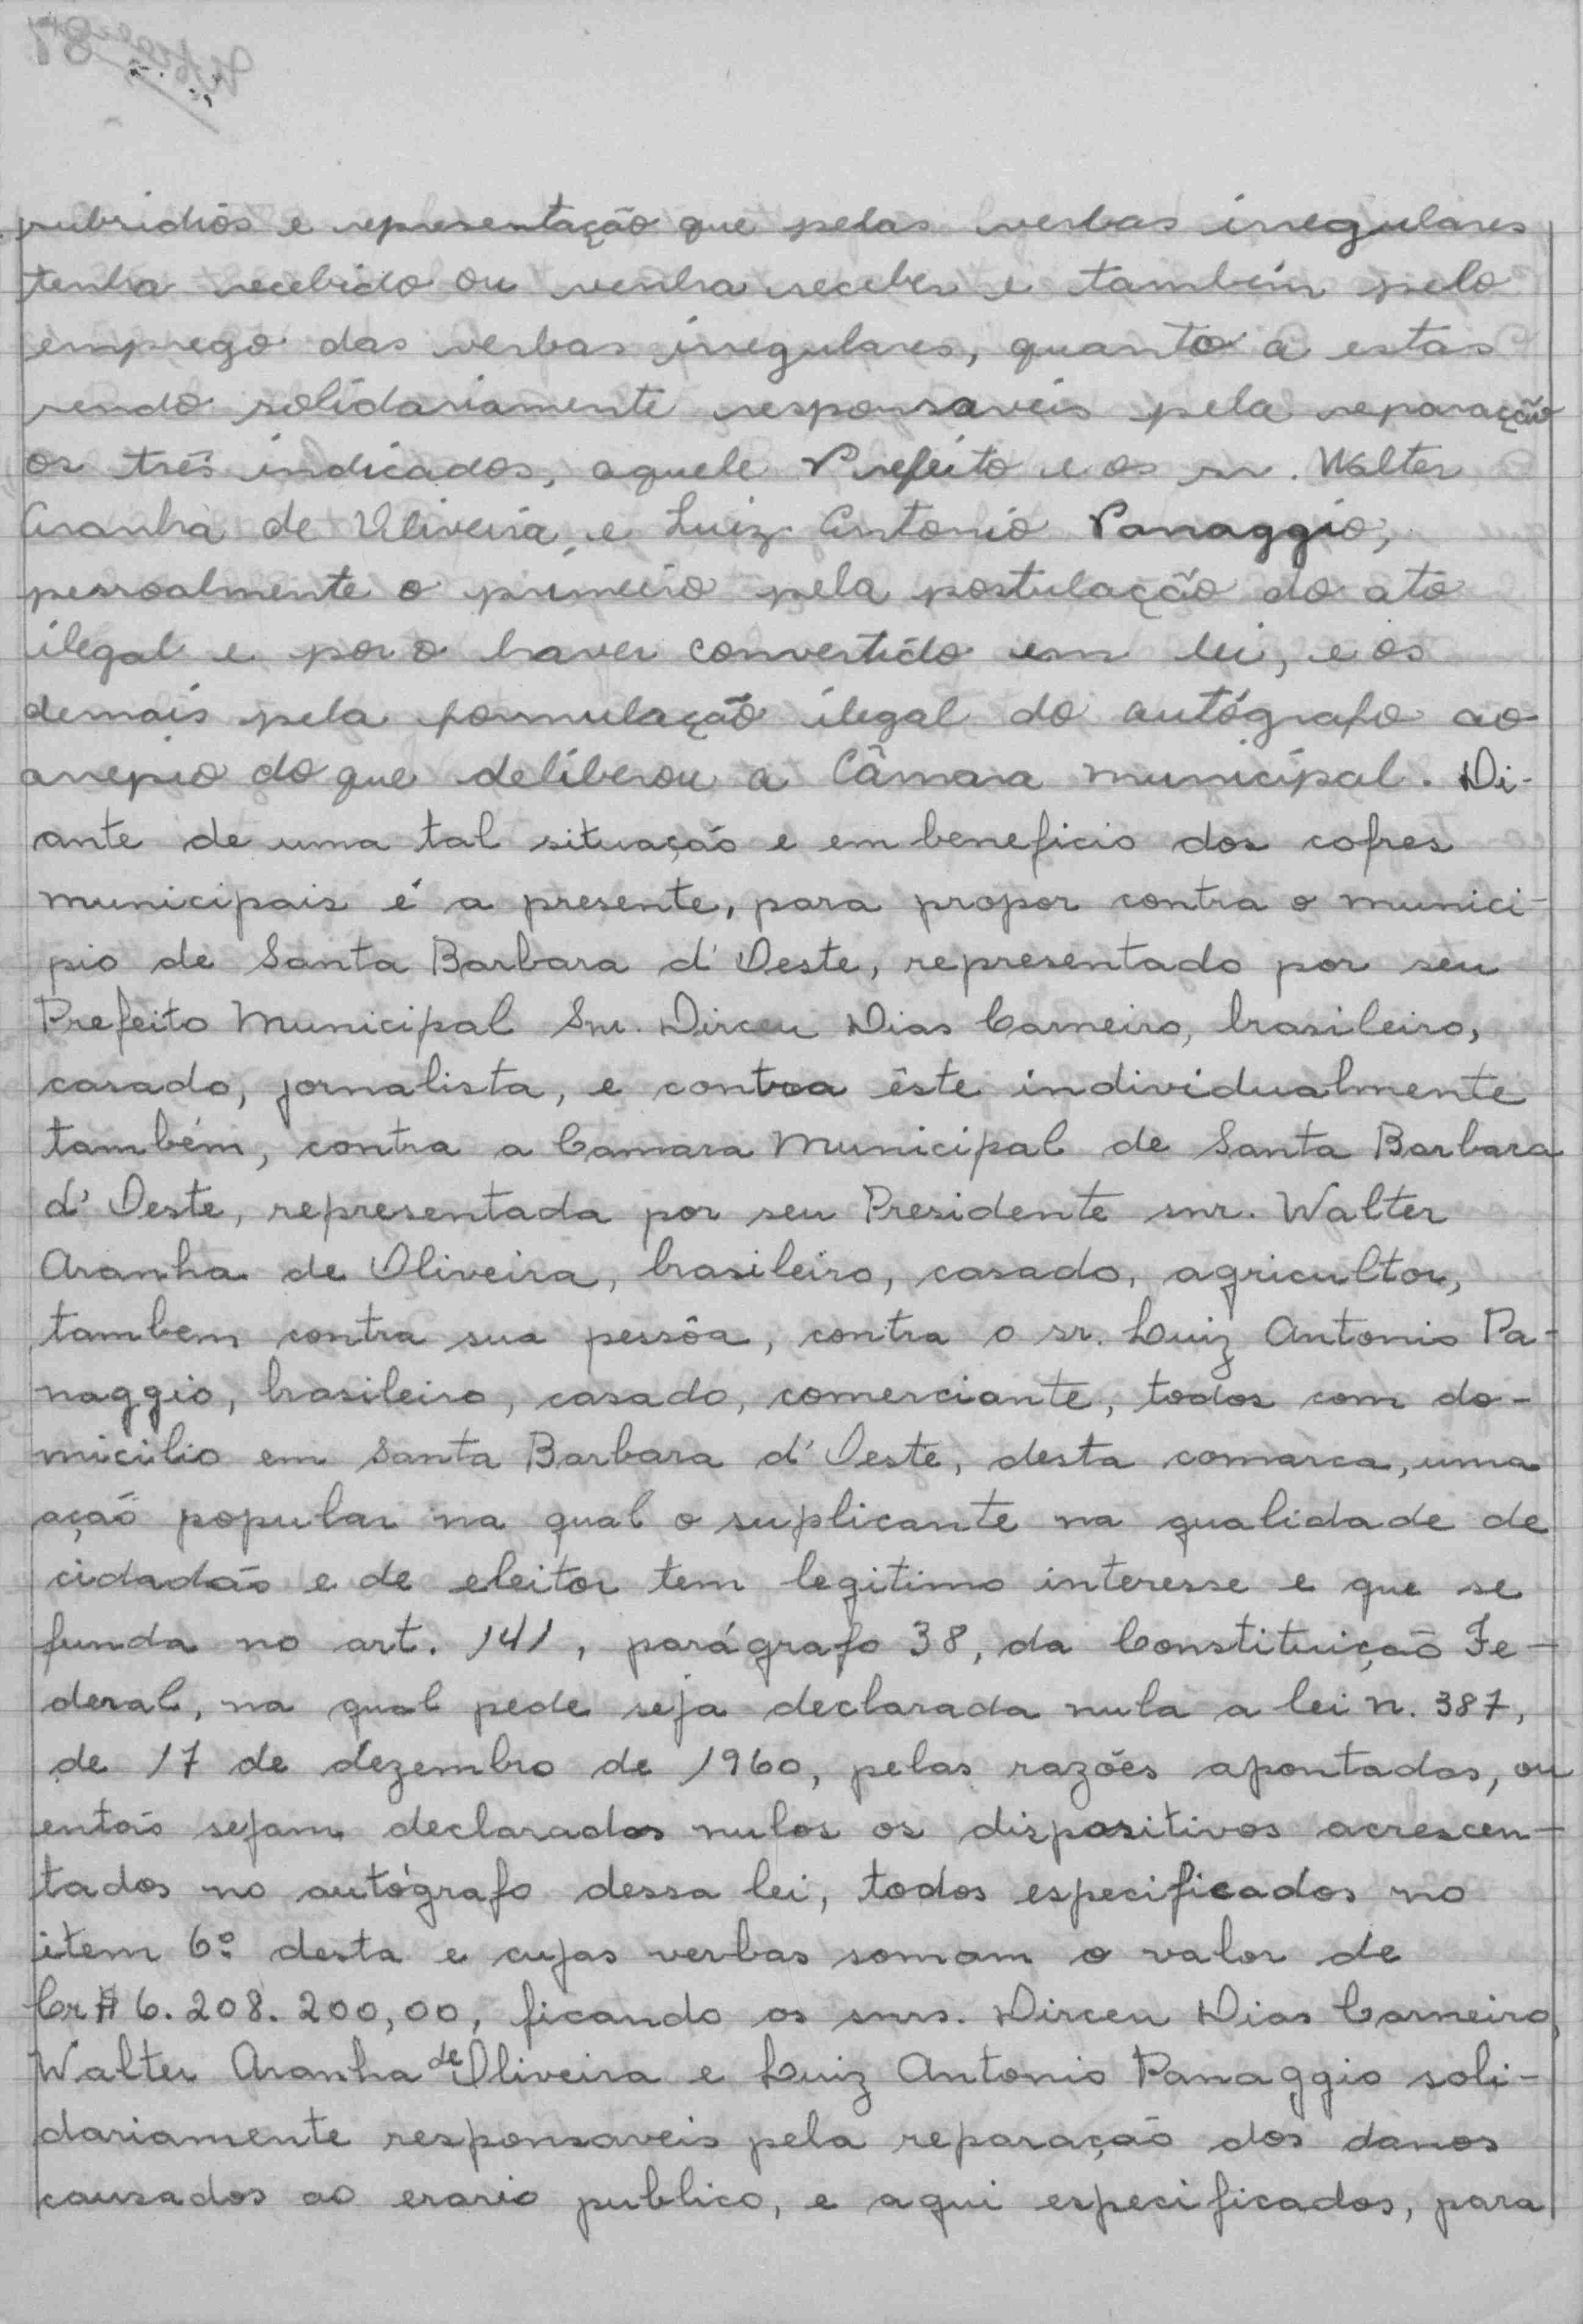 subsidios e representação que pelas verbas irregulares
tenha recebido ou venha receber e também pelo
emprego das verbas irregulares, quanto a estas
sendo solidariamente responsaveis pela reparação
os três indicados, aquele Prefeito e os sr. Walter
Aranha de Oliveira, e Luiz Antonio Panaggio,
pessoalmente o primeiro pela postulação do ato
ilegal e por o haver convertido em lei, e os
demais pela formulação ilegal do autógrafo ao
arrepio do que deliberou a Câmara Municipal. Di-
ante de uma tal situação e em beneficio dos cofres
municipais é a presente, para propor contra o munici-
pio de Santa Barbara d'Oeste, representado por seu
Prefeito Municipal Snr. Dirceu Dias Carneiro, brasileiro,
casado, jornalista, e contra êste individualmente
também, contra a Camara Municipal de Santa Barbara
d'Oeste, representada por seu Presidente snr. Walter
Aranha de Oliveira, brasileiro, casado, agricultor,
tambem contra sua pessôa, contra o sr. Luiz Antonio Pa-
naggio, brasileiro, casado, comerciante, todos com do-
micilio em Santa Barbara d'Oeste, desta comarca, uma
ação popular na qual o suplicante na qualidade de
cidadão e de eleitor tem legitimo interesse e que se
funda no art. 141, parágrafo 38, da Constituição Fe-
deral, na qual pede seja declarada nula a lei n. 387,
de 17 de dezembro de 1960, pelas razões apontadas, ou
então sejam declarados nulos os dispositivos acrescen-
tados no autógrafo dessa lei, todos especificados no
item 6º desta e cujas verbas somam o valor de
Cr$ 6.208.200,00, ficando os snrs. Dirceu Dias Carneiro,
Walter Aranha de Oliveira e Luiz Antonio Panaggio soli-
dariamente responsaveis pela reparação dos danos
causados ao erario publico, e aqui especificados, para